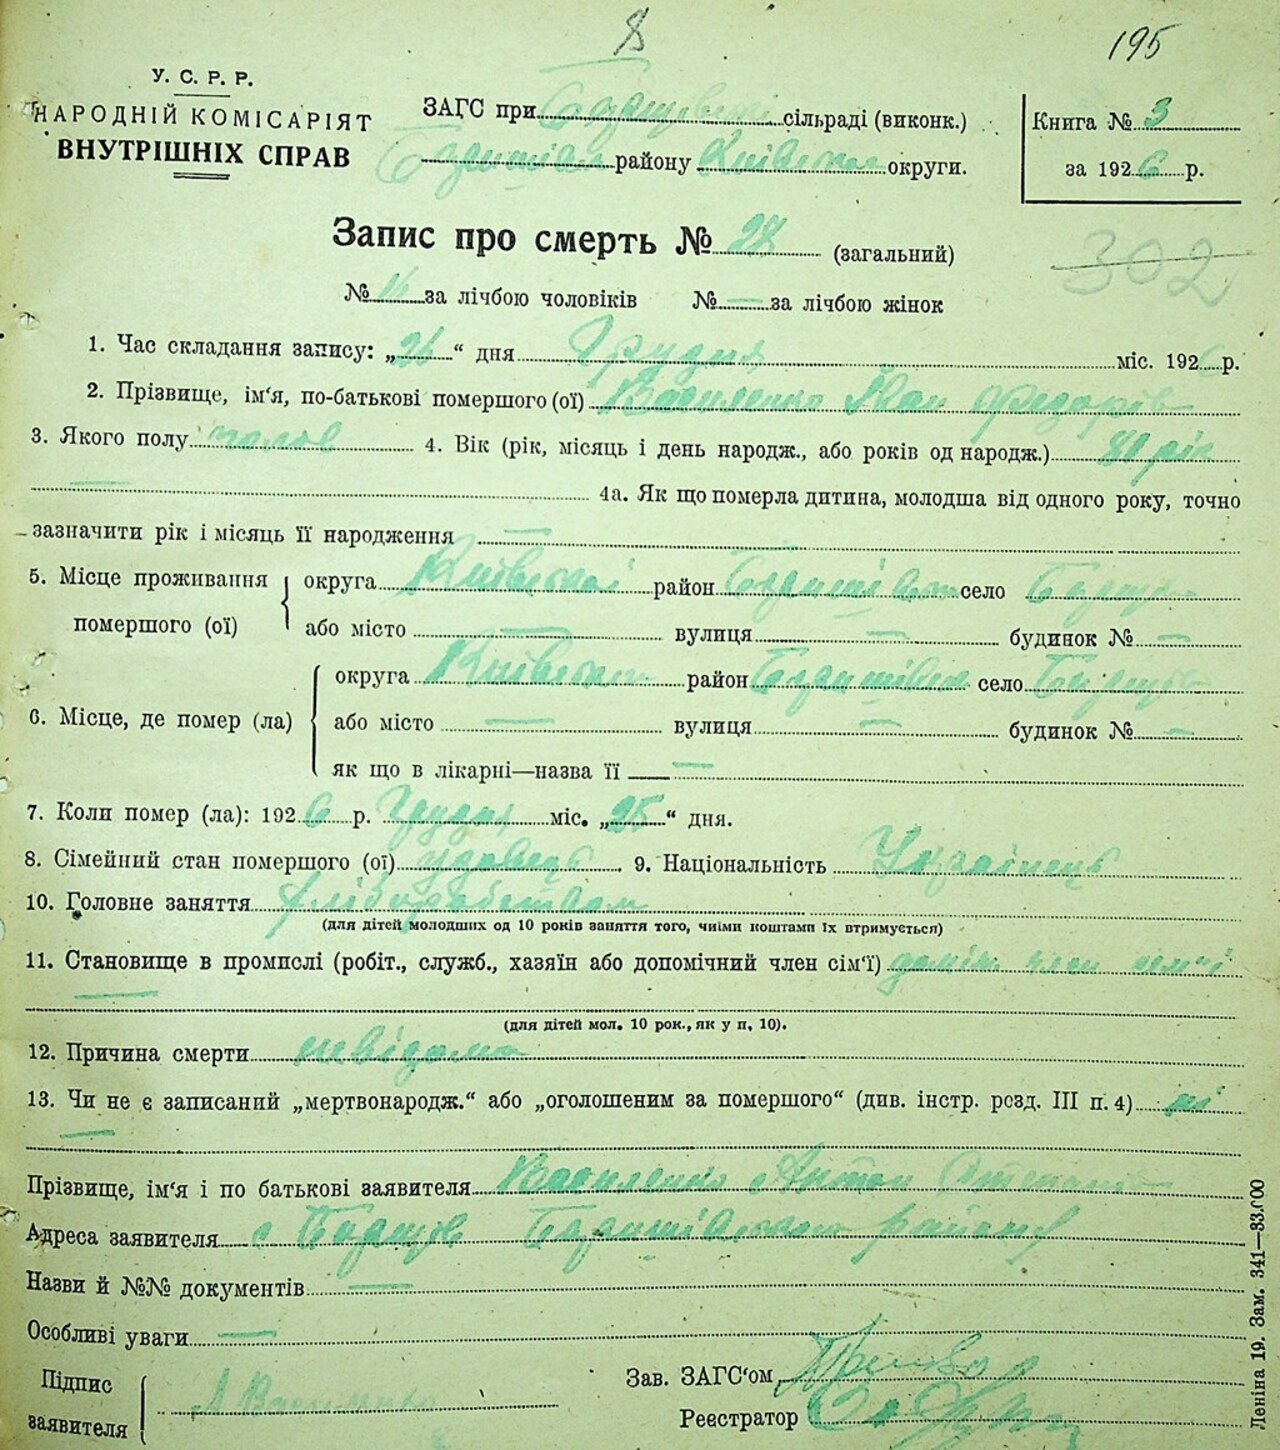 8 195
У. С. Р. Р.
НАРОДНІЙ КОМІСАРІЯТ
ВНУТРІШНІХ СПРАВ
ЗАГС при сільраді (виконк.)
району Київської округи.
Книга № 3
за 1926 р.
Запис про смерть № (загальний)
302
№ 16 за лічбою чоловіків № — за лічбою жінок
1. Час складання запису: „26“ дня Грудня міс. 1926 р.
2. Прізвище, ім‘я, по-батькові помершого (ої) Василенко Іван Федорів
3. Якого полу чолов 4. Вік (рік, місяць і день народж., або років од народж.) 80 рік
— 4а. Як що померла дитина, молодша від одного року, точно
зазначити рік і місяць її народження —
5. Місце проживання помершого (ої) округа Київської район село
або місто — вулиця — будинок № —
6. Місце, де помер (ла) округа район село
або місто — вулиця — будинок № —
як що в лікарні—назва її —
7. Коли помер (ла): 1926 р. Грудня міс. „25“ дня.
8. Сімейний стан помершого (ої) удовець 9. Національність Українець
10. Головне заняття хліборобством
(для дітей молодших од 10 років заняття того, чиїми коштами їх втримується)
11. Становище в промислі (робіт., служб., хазяїн або допомічний член сім‘ї) член
—
(для дітей мол. 10 рок., як у п. 10).
12. Причина смерти невідома
13. Чи не є записаний „мертвонародж.“ або „оголошеним за помершого“ (див. інстр. розд. III п. 4) ні
—
Прізвище, ім‘я і по батькові заявителя Василенко Антон
Адреса заявителя с району
Назви й №№ документів —
Особливі уваги —
Підпис заявителя А Василенко
Зав. ЗАГС‘ом
Реєстратор
Леніна 19. Зам. 341—33.000